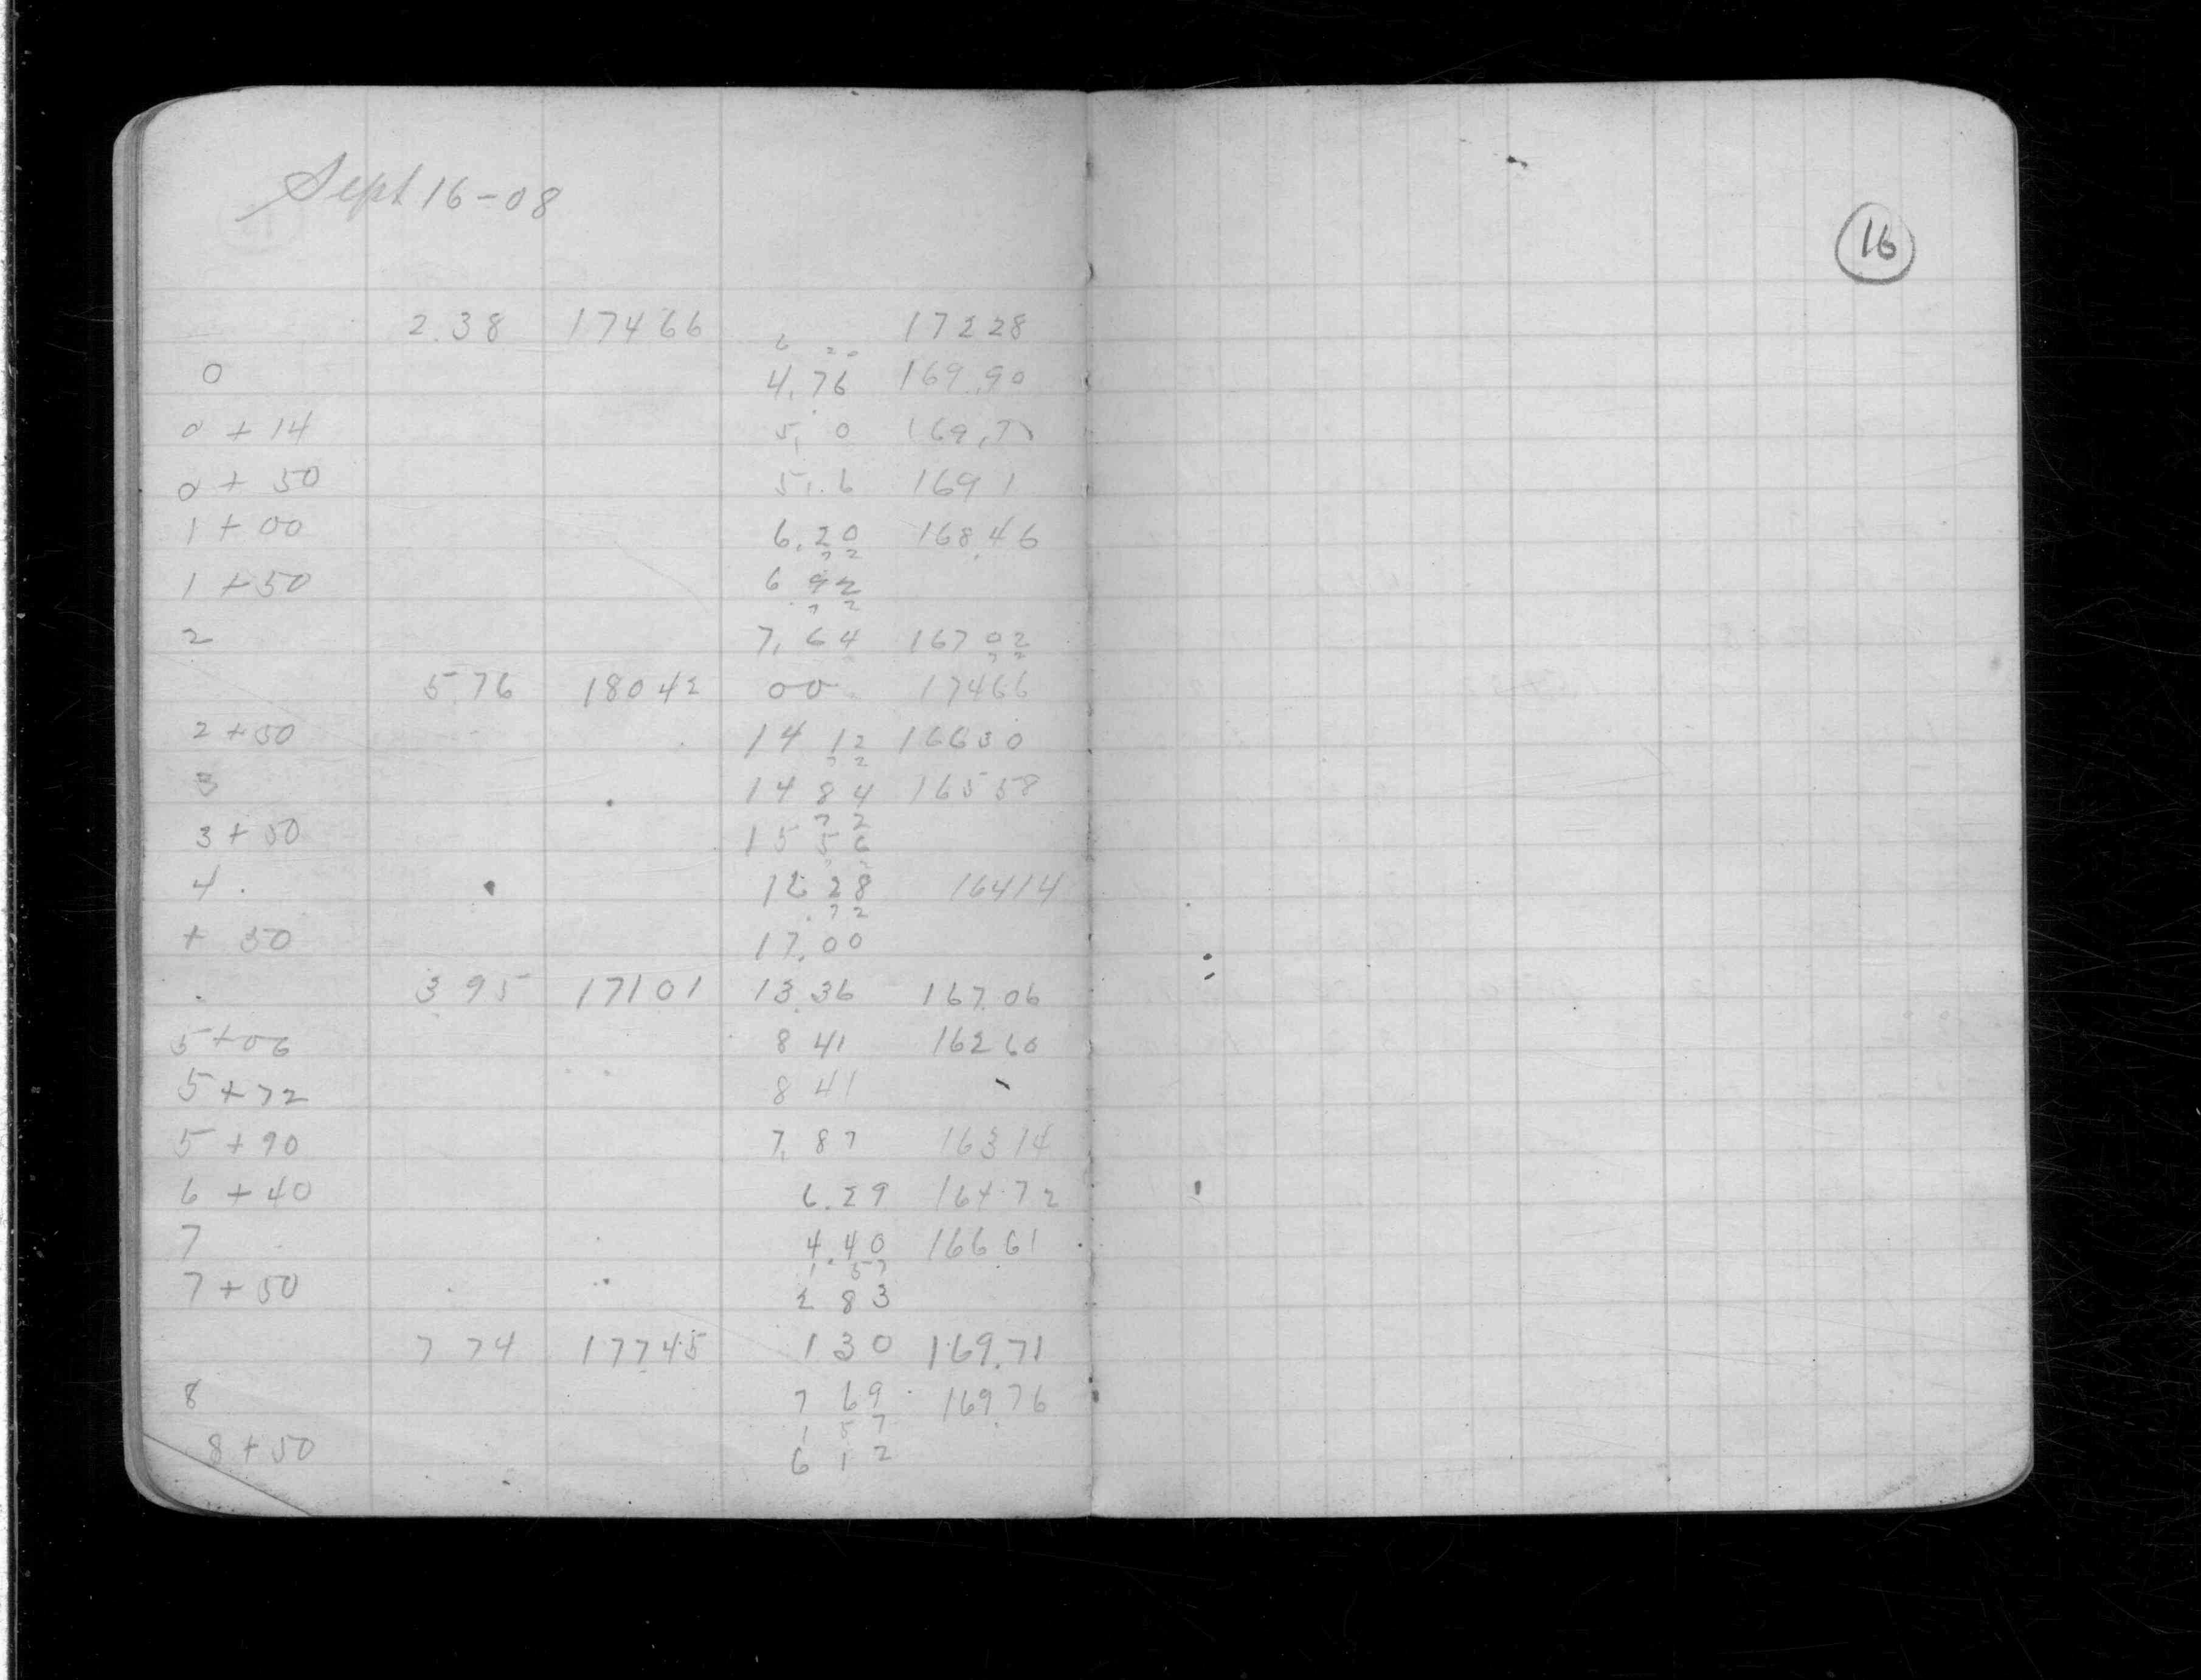 Sept 16-08
16
2.38 17466 17228
6 20
0 4.76 169.90
0 + 14 5.0 169.7
0 + 50 5.6 169 1
1 + 00 6.20 168.46
72
1 + 50 6 92
72
2 7.64 167 02
72
5 76 180 42 00 17466
2 + 50 14 12 166 30
72
3 14 84 165 58
72
3 + 50 15 56
4 . 16 28 164 14
.72
+ 50 17.00
3 95 171 01 13.36 167.06
5 + 06 8 41 162 60
5 + 72 8 41
5 + 90 7.87 163 14
6 + 40 6.29 164.72
7 4.40 166 61
1 57
7 + 50 2 83
7 74 177.45 1 30 169.71
8 7 69 169.76
1 57
8 + 50 6 12